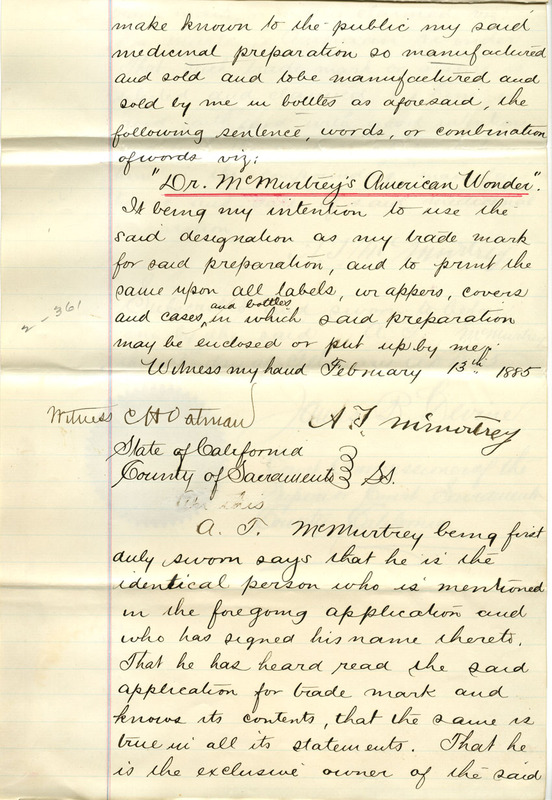 make known to the public my said
medicinal preparation so manufactured
and sold and to be manufactured and
sold by me in bottles as aforesaid, the
following sentence, words, or combination
of words viz:
"Dr. McMurtrey's American Wonder".
It being my intention to use the
said designation as my trade mark
for said preparation, and to print the
same upon all labels, wrappers, covers
and bottles
and cases, in which said preparation
2-361
may be enclosed or put up by me.
Witness my hand February 13th 1885
Witness C H Oatman A. T. McMurtrey
State of California
County of Sacramento } Ss.
On this
A. T. McMurtrey being first
duly sworn says that he is the
identical person who is mentioned
in the foregoing application and
who has signed his name thereto.
That he has heard read the said
application for trade mark and
knows its contents, that the same is
true in all its statements. That he
is the exclusive owner of the said